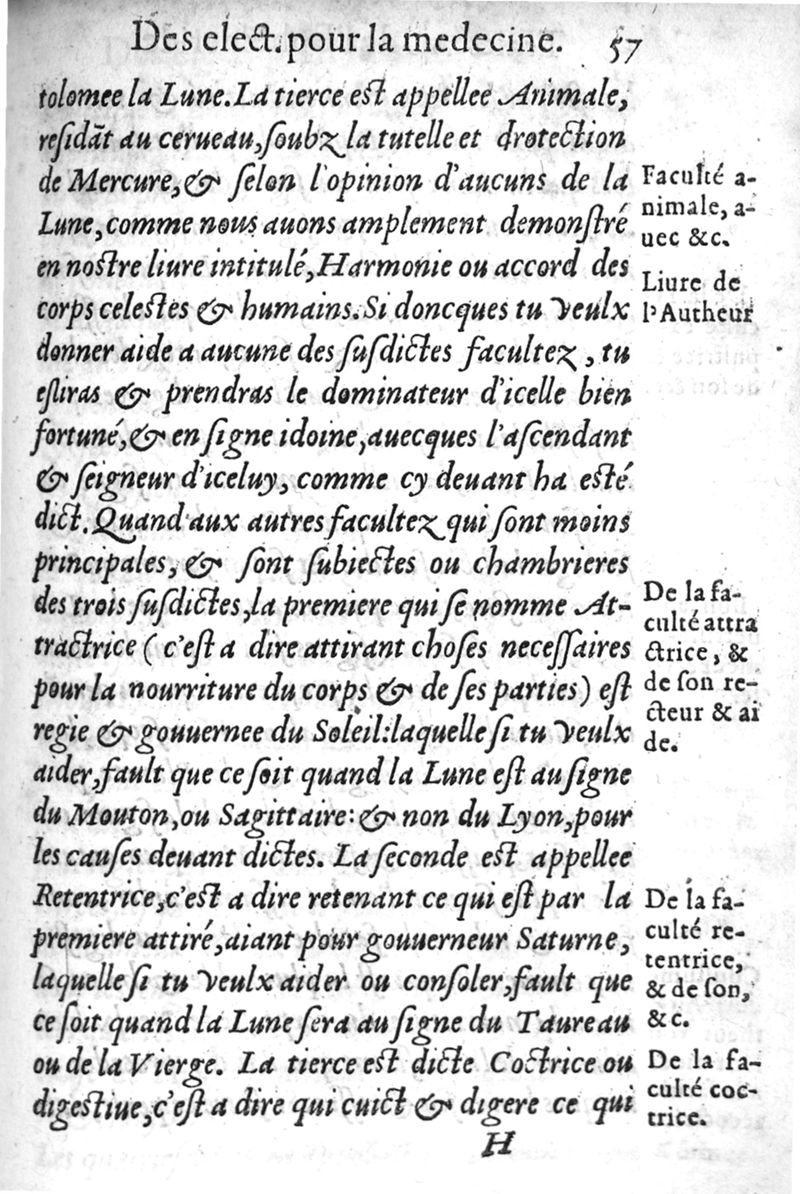 Des elect. pour la medecine. 57
tolomee la Lune. La tierce est appellee Animale,
residāt au cerueau, soubz la tutelle et drotection
de Mercure, & selon l'opinion d'aucuns de la
Lune, comme nous auons amplement demonstré
en nostre liure intitulé, Harmonie ou accord des
corps celestes & humains. Si doncques tu veulx
donner aide a aucune des susdictes facultez, tu
esliras & prendras le dominateur d'icelle bien
fortuné, & en signe idoine, auecques l'ascendant
& seigneur d'iceluy, comme cy deuant ha esté
dict. Quand aux autres facultez qui sont moins
principales, & sont subiectes ou chambrieres
des trois susdictes, la premiere qui se nomme At-
tractrice (c'est a dire attirant choses necessaires
pour la nourriture du corps & de ses parties) est
regie & gouuernee du Soleil: laquelle si tu veulx
aider, fault que ce soit quand la Lune est au signe
du Mouton, ou Sagittaire: & non du Lyon, pour
les causes deuant dictes. La seconde est appellee
Retentrice, c'est a dire retenant ce qui est par la
premiere attiré, aiant pour gouuerneur Saturne,
laquelle si tu veulx aider ou consoler, fault que
ce soit quand la Lune sera au signe du Taureau
ou de la Vierge. La tierce est dicte Coctrice ou
digestiue, c'est a dire qui cuict & digere ce qui
H
Faculté a-
nimale, a-
uec &c.
Liure de
l'Autheur
De la fa-
culté attra
ctrice, &
de son re-
cteur & ai
de.
De la fa-
culté re-
tentrice,
& de son,
&c.
De la fa-
culté coc-
trice.